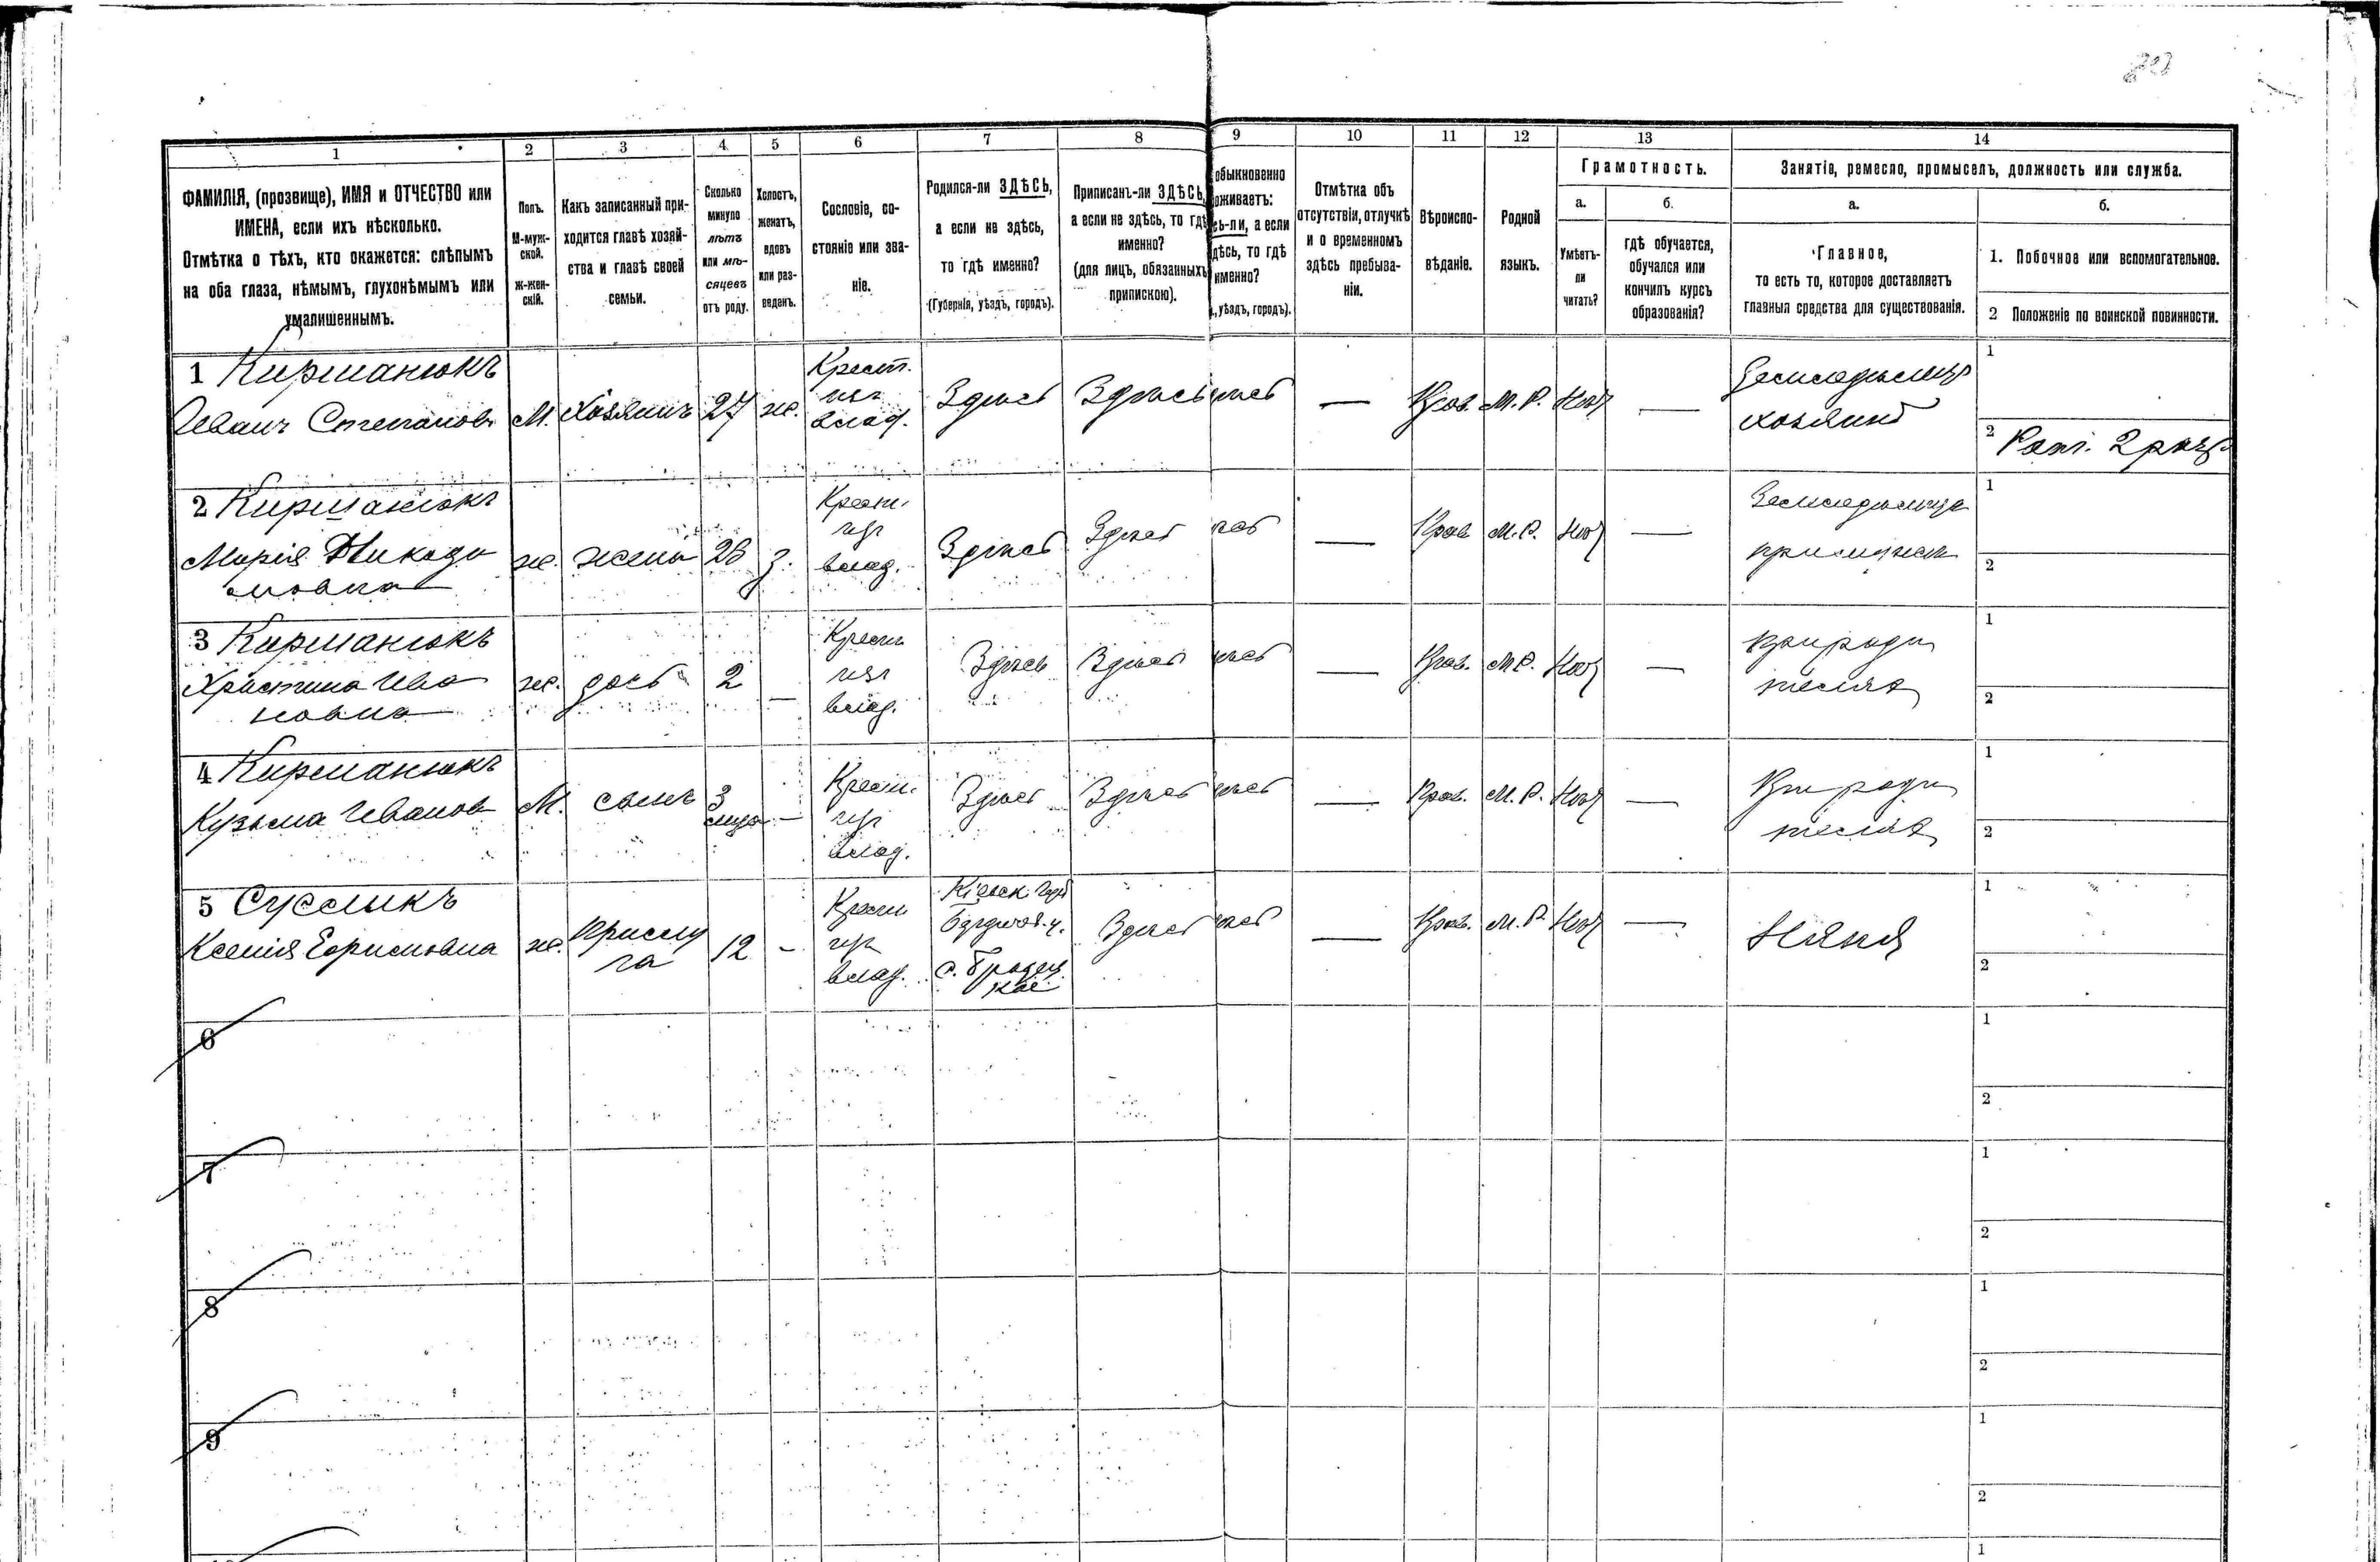 1 2 3 4 5 6 7 8 9 10 11 12 13 14
ФАМИЛІЯ, (прозвище), ИМЯ и ОТЧЕСТВО или
ИМЕНА, если ихъ нѣсколько.
Отмѣтка о тѣхъ, кто окажется: слѣпымъ
на оба глаза, нѣмымъ, глухонѣмымъ или
умалишеннымъ.
Полъ.
М-муж-
ской.
Ж-жен-
скій.
Какъ записанный при-
ходится главѣ хозяй-
ства и главѣ своей
семьи.
Сколько
минуло
лѣтъ
или мѣ-
сяцевъ
отъ роду.
Холостъ,
женатъ,
вдовъ
или раз-
веденъ.
Сословіе, со-
стояніе или зва-
ніе.
Родился-ли ЗДѢСЬ,
а если не здѣсь,
то гдѣ именно?
(Губернія, уѣздъ, городъ).
Приписанъ-ли ЗДѢСЬ,
а если не здѣсь, то гдѣ
именно?
(для лицъ, обязанныхъ
припискою).
обыкновенно
оживаетъ:
сь-ли, а если
дѣсь, то гдѣ
именно?
., уѣздъ, городъ).
Отмѣтка объ
отсутствіи, отлучкѣ
и о временномъ
здѣсь пребыва-
ніи.
Вѣроиспо-
вѣданіе.
Родной
языкъ.
Грамотность.
а.
Умѣетъ-
ли
читать?
б.
гдѣ обучается,
обучался или
кончилъ курсъ
образованія?
Занятіе, ремесло, промыселъ, должность или служба.
а.
Главное,
то есть то, которое доставляетъ
главныя средства для существованія.
б.
1. Побочное или вспомогательное.
2 Положеніе по воинской повинности.
1 Кирманюкъ
Иванъ Степановъ
М. Хозяинъ 27 ж.
Крест.
изъ
влад.
Здѣсь Здѣсь ѣсь — Прав. М.Р. Нѣт —
Земледѣлецъ
хозяинъ
1
2 Рат. 2 разр.
2 Кирманюкъ
Марія Никодимовна
ж. жена 26 з.
Крест.
изъ
влад.
Здѣсь Здѣсь ѣсь — Прав М.Р. Нѣт —
Земледѣлица
1
2
3 Кирманюкъ
Христина Ива
новна
ж. дочь 2 —
Крест
изъ
влад.
Здѣсь Здѣсь ѣсь — Прав. М.Р. Нѣт —
При роди
теляхъ
1
2
4 Кирманюкъ
Кузьма Иванов
М. сынъ 3
мѣс. —
Крест.
изъ
влад.
Здѣсь Здѣсь ѣсь — Прав. М.Р. Нѣт —
При роди
теляхъ
1
2
5 Сусликъ
Ксенія Ефимовна
ж. прислу
га
12 —
Крест
изъ
влад.
Кіевск. губ.
Бердичев. у.
с. Бродец
кое
Здѣсь ѣсь — Прав. М.Р. Нѣт —
Няня
1
2
6
1
2
7
1
2
8
1
2
9
1
2
1